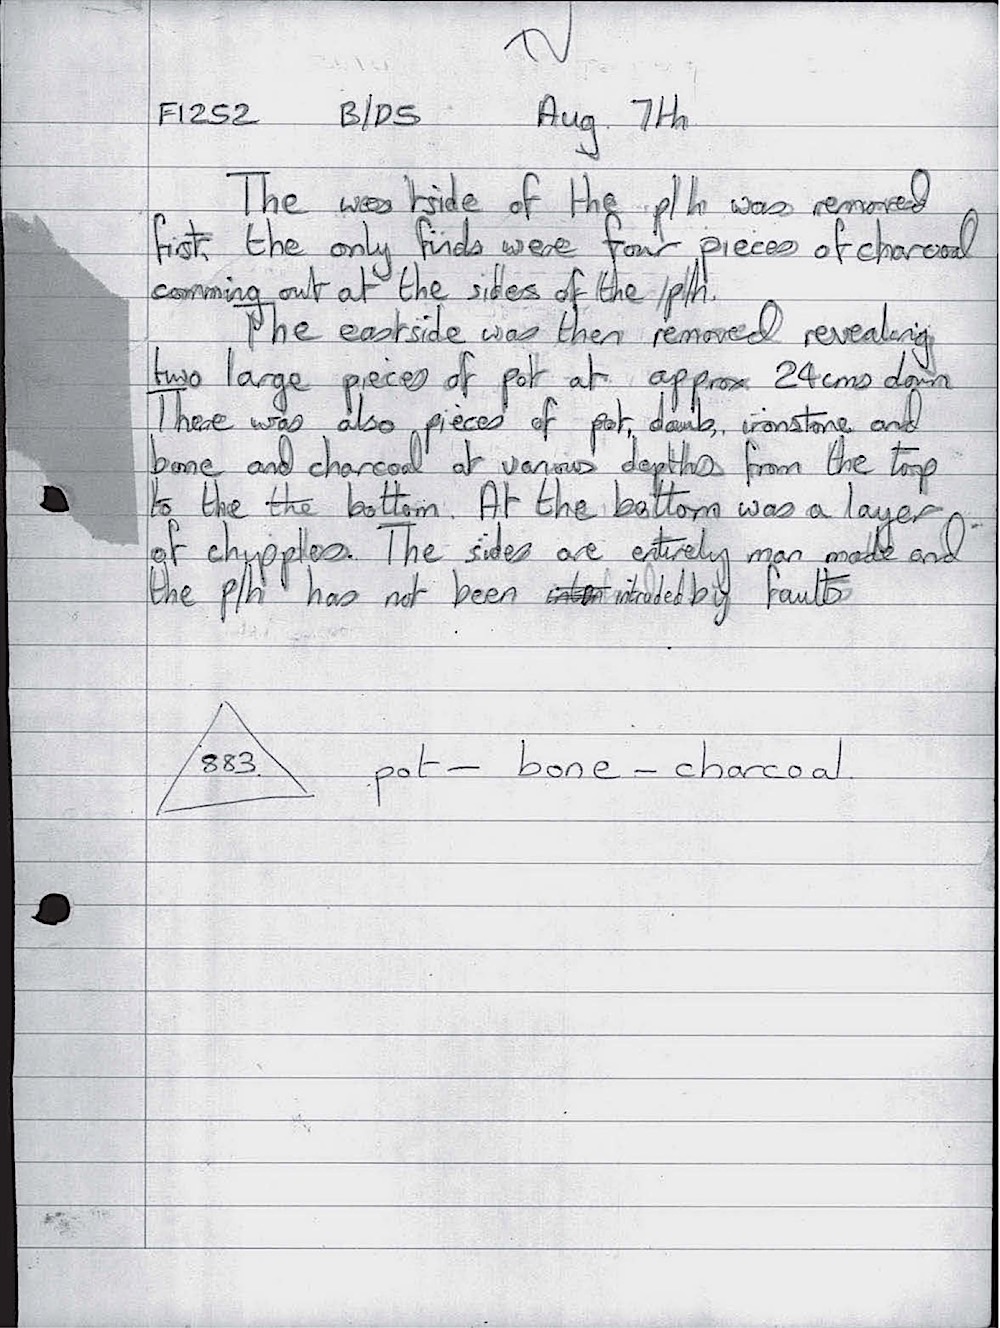 F1252 B/DS Aug. 7th
The westside of the p/h was removed
first, the only finds were four pieces of charcoal
comming out at the sides of the p/h.
The eastside was then removed revealing
two large pieces of pot at approx 24cms down
There was also pieces of pot, daub, ironstone and
bone and charcoal at various depths from the top
to the the bottom. At the bottom was a layer
of chypples. The sides are entirely man made and
the p/h has not been intruded by faults
883. pot - bone - charcoal.